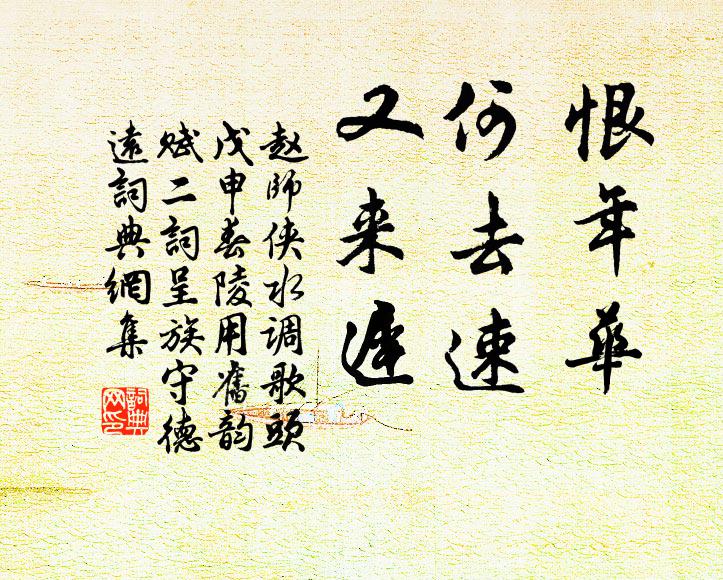 恨年華
何去速
又来遲
赵師侠水调歌頭
戊申春陵用舊韵
赋二詞呈族守德
遠詞典網集
詞典
网印